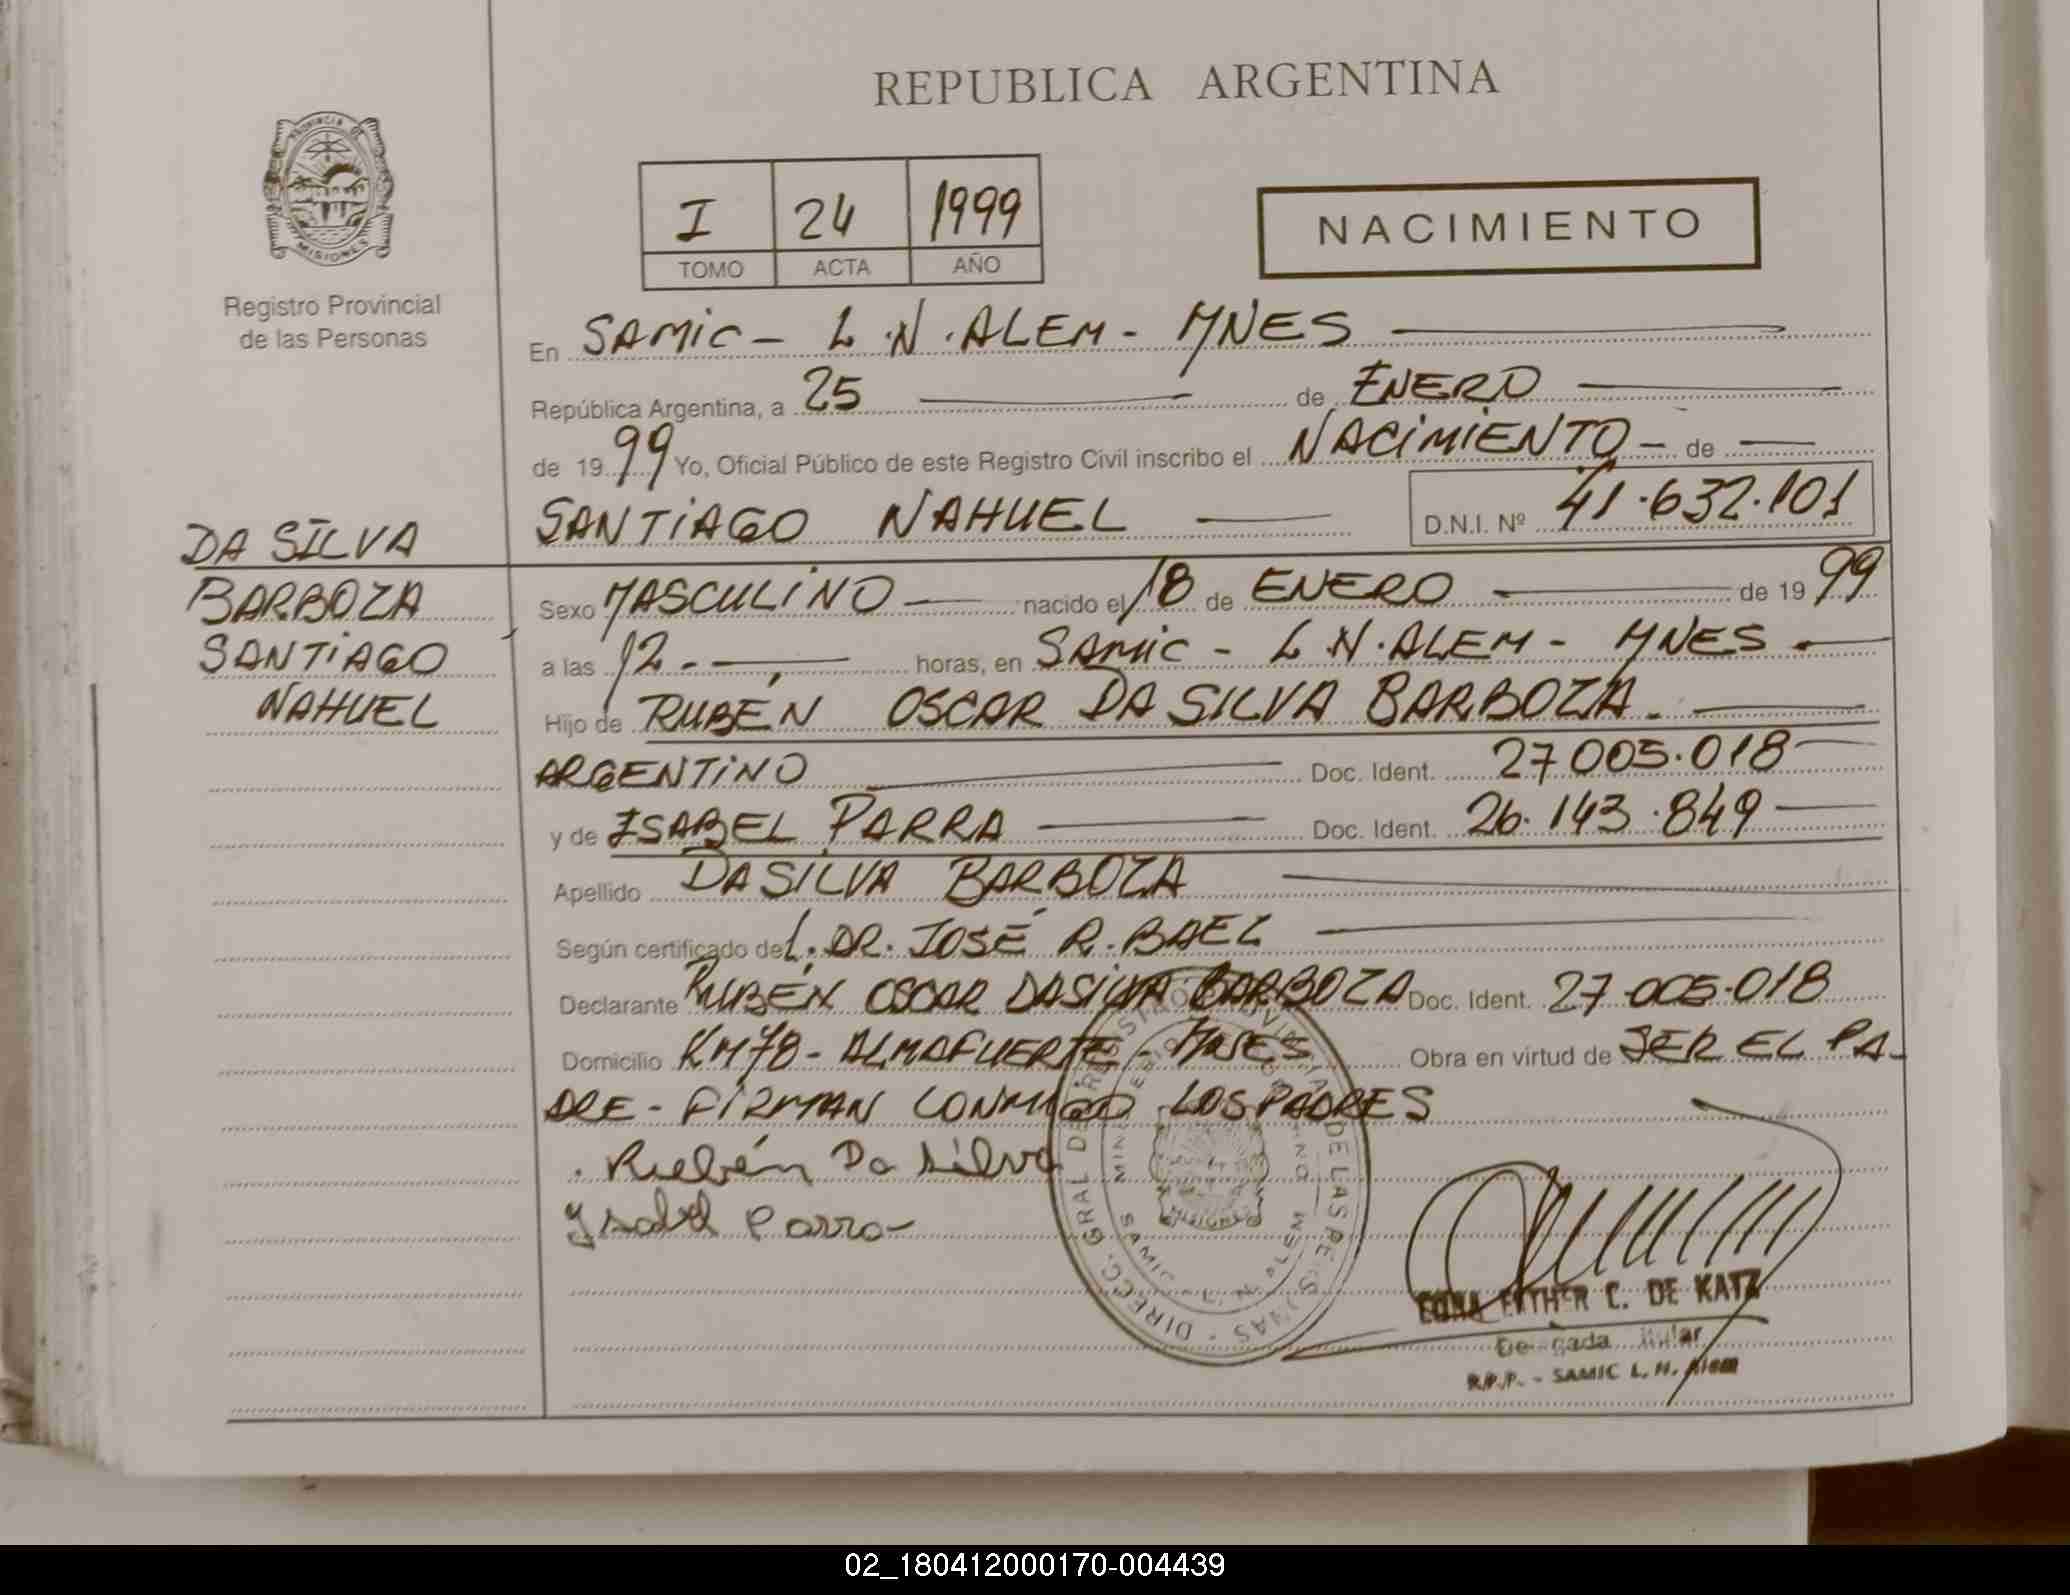 REPUBLICA ARGENTINA
PROVINCIA DE
MISIONES
Registro Provincial
de las Personas
I 24 1999
TOMO ACTA AÑO
NACIMIENTO
En SAMIC - L.N. ALEM - MNES
República Argentina, a 25 de ENERO
de 1999 Yo, Oficial Público de este Registro Civil inscribo el NACIMIENTO - de
SANTIAGO NAHUEL D.N.I. Nº 41.632.101
DA SILVA
BARBOZA
SANTIAGO
NAHUEL
Sexo MASCULINO nacido el 18 de ENERO de 1999
a las 12 horas, en SAMIC - L N. ALEM - MNES
Hijo de RUBÉN OSCAR DA SILVA BARBOZA
ARGENTINO Doc. Ident. 27 005.018
y de ISABEL PARRA Doc. Ident. 26.143.849
Apellido DA SILVA BARBOZA
Según certificado del. DR. JOSÉ R. BAEZ
Declarante RUBÉN OSCAR DA SILVA BARBOZA Doc. Ident. 27-005-018
Domicilio KM 78 - ALMAFUERTE - MNES Obra en virtud de SER EL PA-
DRE - FIRMAN CONMIGO LOS PADRES
Rubén Da Silva
Isabel Parra
DIRECC. GRAL DE REGISTRO PROVINCIAL DE LAS PERSONAS
SAMIC - L. N. ALEM
MISIONES
ESTHER C. DE KATZ
R.P.P. - SAMIC L. N. Alem
02_180412000170-004439